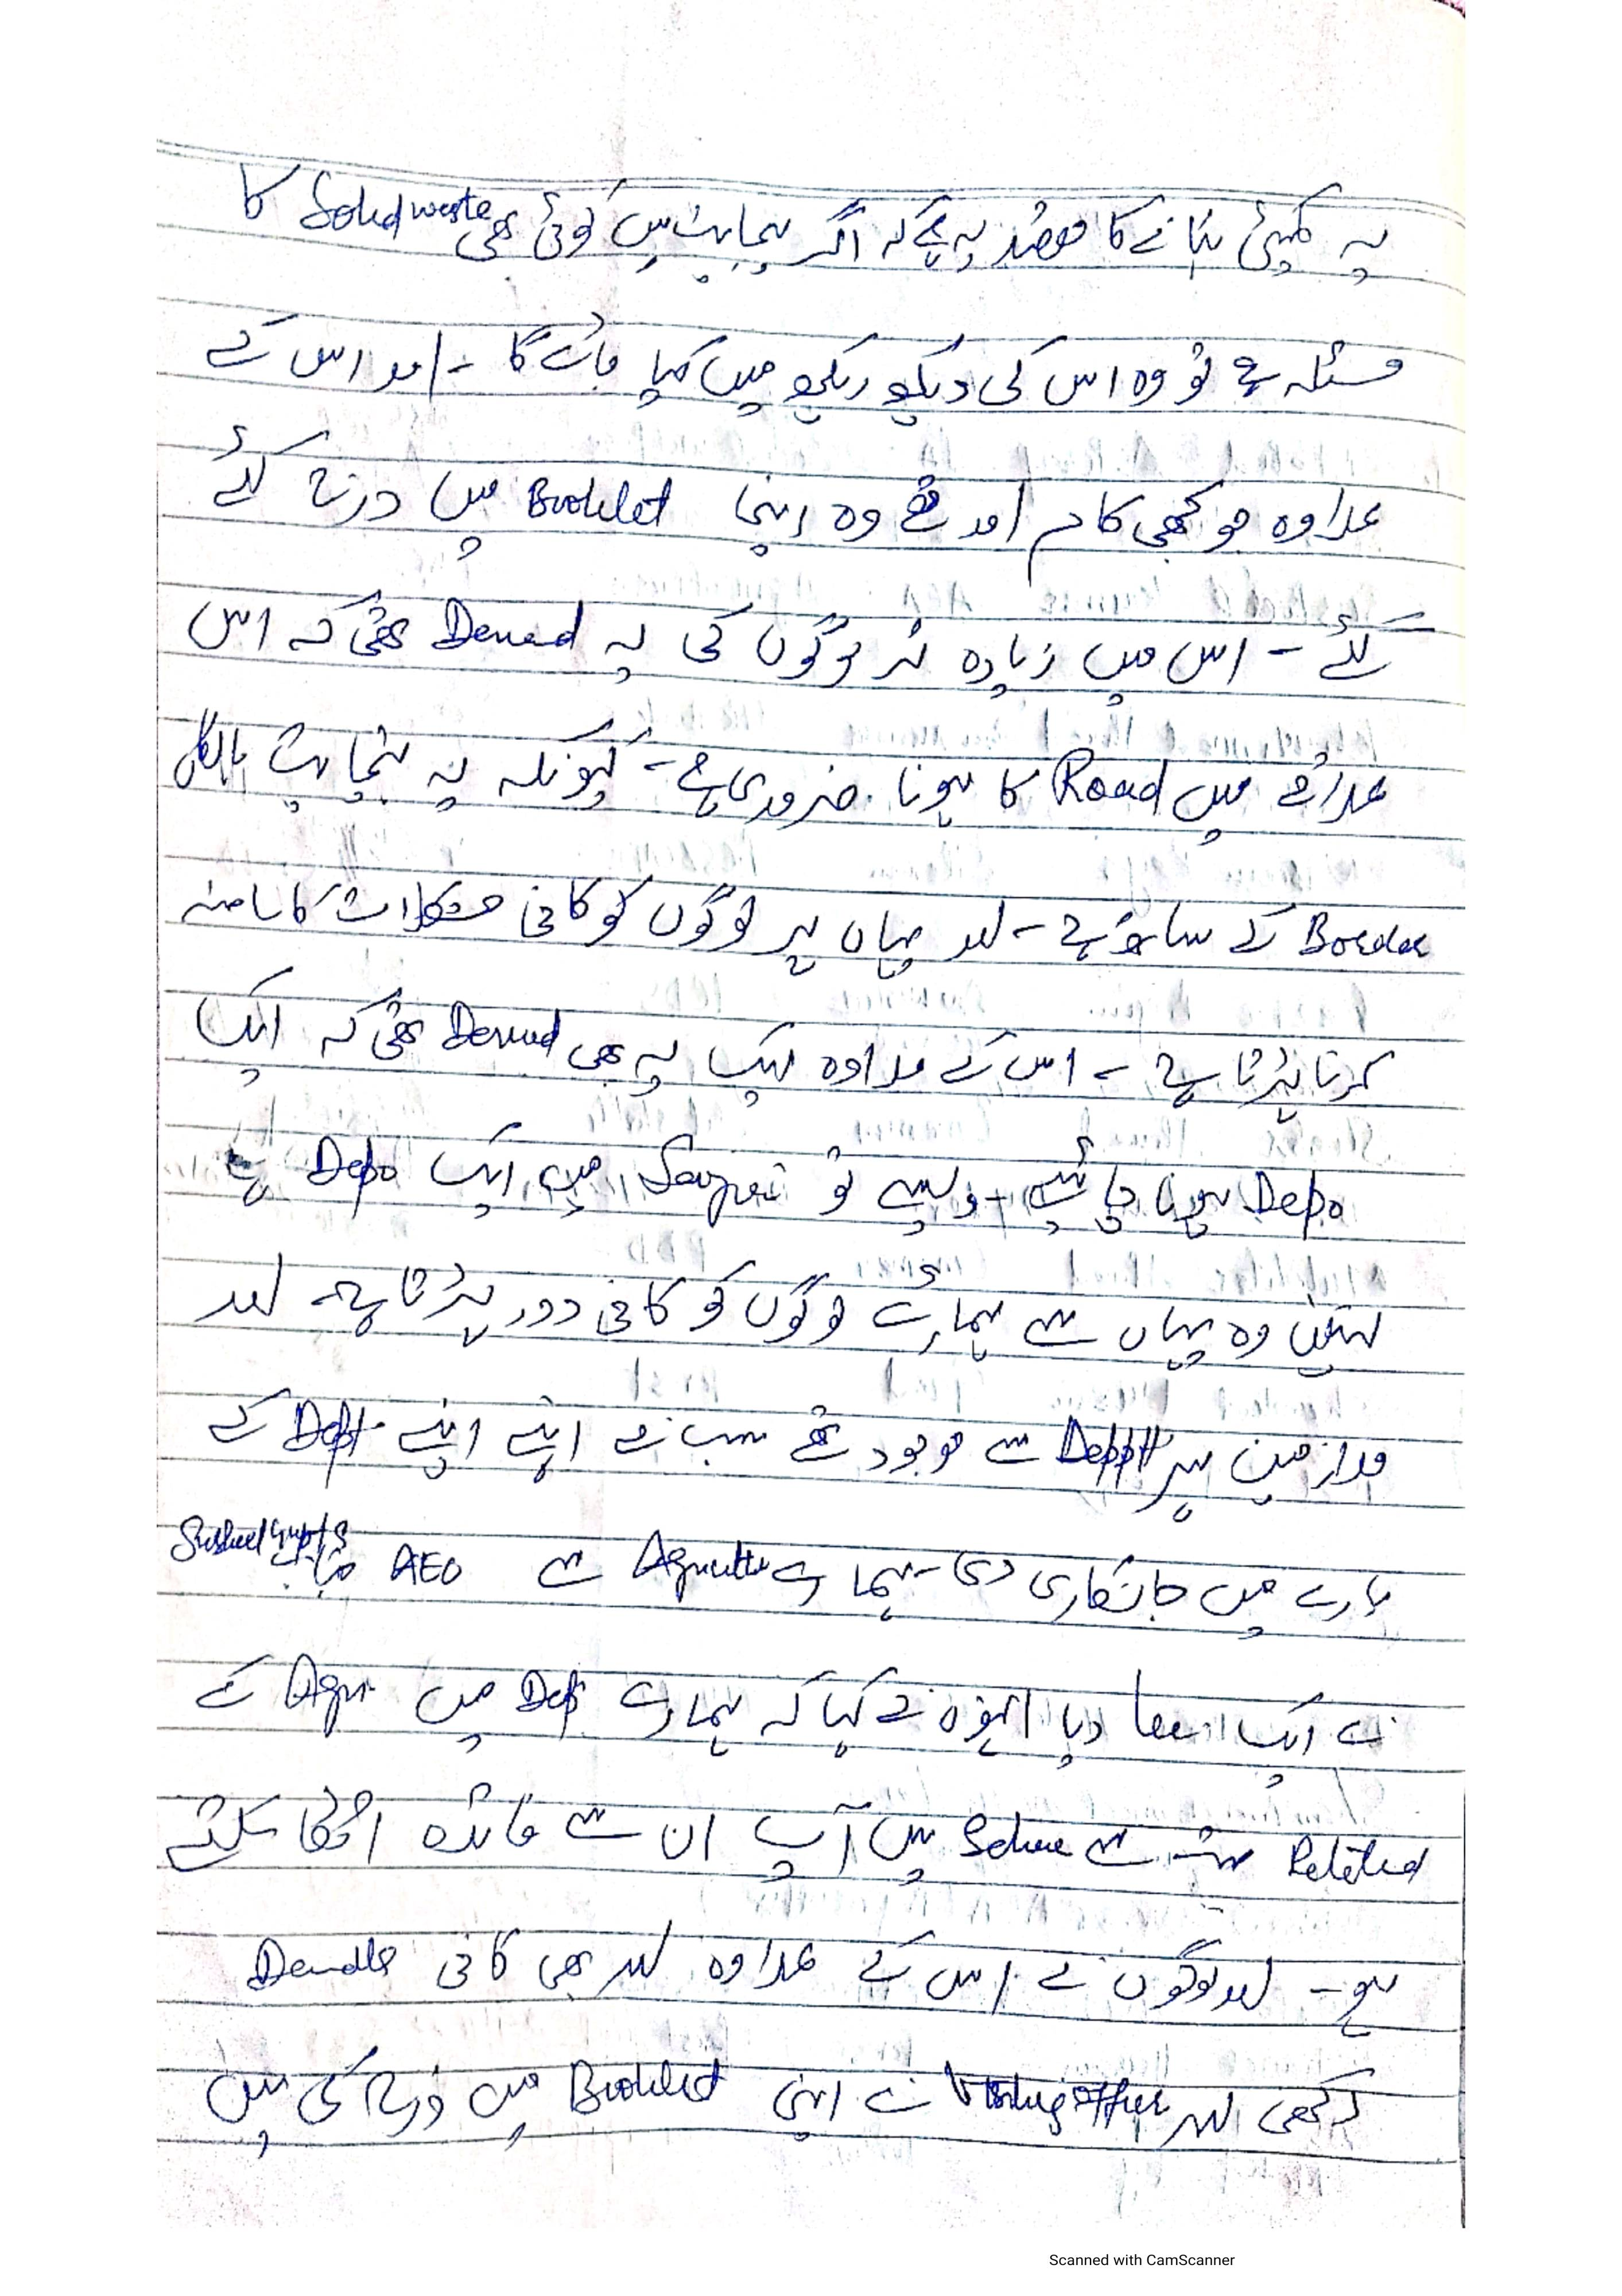 یہ کمیٹی بنانے کا مقصد یہ ہے کہ اگر پنچایت میں کوئی بھی Solid waste کا
مسئلہ ہے تو وہ اس کی دیکھ ریکھ میں کیا جائے گا ۔ اور اس کے
علاوہ جو بھی کام اور تھے وہ اپنی Booklet میں درج کئے
گئے ۔ اس میں زیادہ تر لوگوں کی یہ Demad تھی کہ اس
علاقے میں Road کا ہونا ضروری ہے ۔ کیونکہ یہ پنچایت بالکل
Border کے ساتھ ہے ۔ اور یہاں پر لوگوں کو کافی مشکلات کا سامنہ
کرنا پڑتا ہے ۔ اس کے علاوہ ایک یہ بھی Demad تھی کہ ایک
Depo ہونا چاہئیے ۔ ویسے تو میں ایک Depo ہے
لیکن وہ یہاں سے ہمارے لوگوں کو کافی دور پڑتا ہے ۔ اور
ملازمین ہر Deptt سے موجود تھے سب نے اپنے اپنے Deptt کے
بارے میں جانکاری دی ۔ ہمارے Agriculture سے AEO جناب Susheel Gupta
نے ایک دیا انہوں نے کہا کہ ہمارے Dept میں Agri کے
Related بہت سے Scheme ہیں آپ ان سے فائدہ اٹھا سکتے
ہو ۔ اور لوگوں نے اس کے علاوہ اور بھی کافی Demads
رکھی اور Visiting officer نے اپنی Booklet میں درج کی ہیں
Scanned with CamScanner